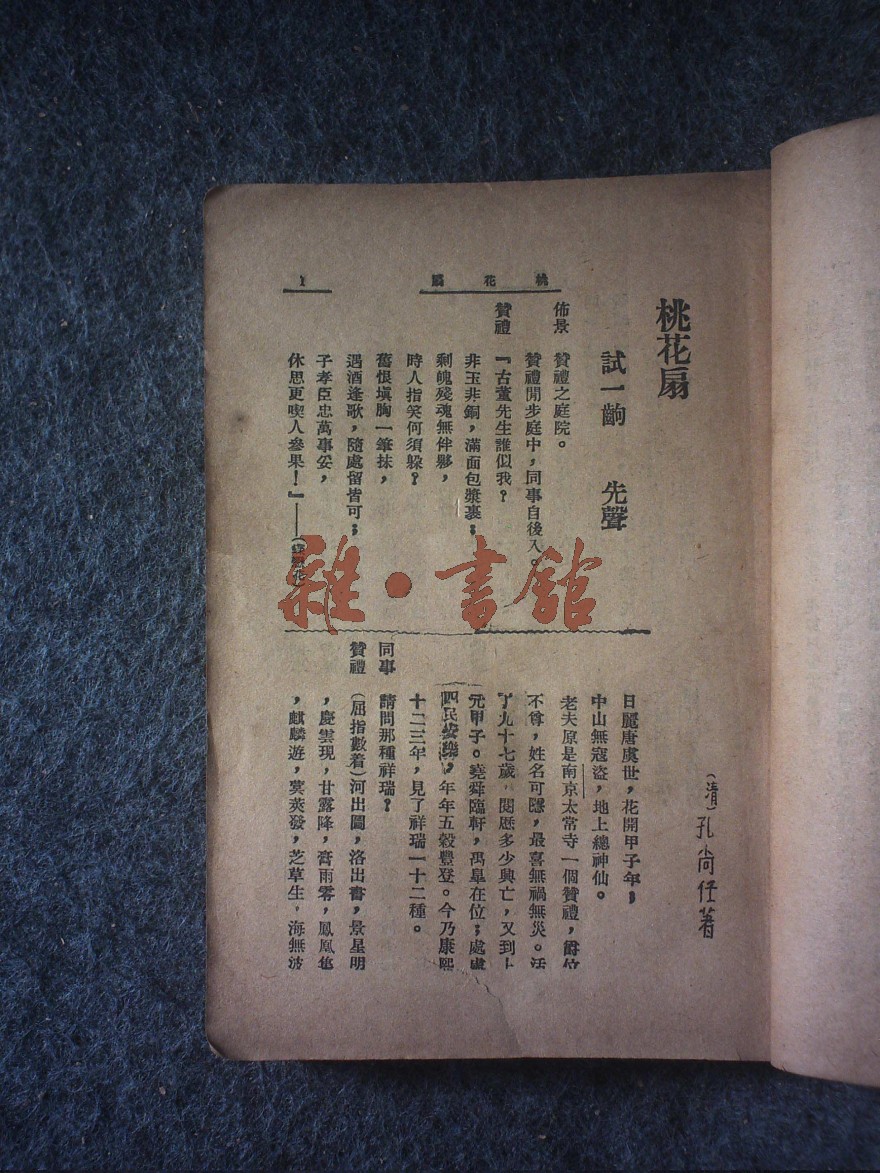 桃花扇
試一齣　先聲
(清)孔尚任著
桃花扇
1
佈景　贊禮之庭院。
贊禮閒步庭中，同事自後入。
贊禮　『古董先生誰似我？
非玉非銅，滿面包漿裹；
剩魄殘魂無伴夥，
時人指笑何須躲？
舊恨塡胸一筆抹，
遇酒逢歌，隨處留皆可；
子孝臣忠萬事妥，
休思更喫人參果！』——
日麗唐虞世，花開甲子年；
中山無寇盜，地上總神仙。
老夫原是南京太常寺一個贊禮，爵位
不尊，姓名可隱，最喜無禍無災。活
了九十七歲，閱歷多少興亡，又到上
元甲子。堯舜臨軒，禹皋在位；處處
四民安樂，年年五穀豐登。今乃康熙
十二三年，見了祥瑞一十二種。
同事　請問那種祥瑞？
贊禮　(屈指數着)河出圖，洛出書，景星明
，慶雲現，甘露降，膏雨零，鳳凰集
，麒麟遊，蓂莢發，芝草生，海無波
雜·書館